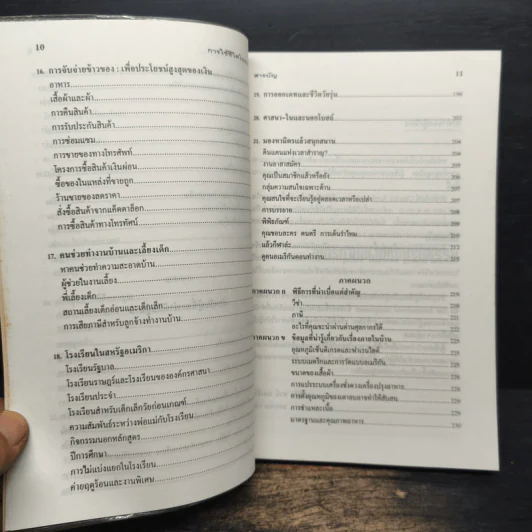 10
การใช้ชีวิต
16. การจับจ่ายข้าวของ : เพื่อประโยชน์สูงสุดของเงิน
อาหาร
เสื้อผ้าและผ้า
การคืนสินค้า
การรับประกันสินค้า
การซ่อมแซม
การขายของทางโทรศัพท์
โครงการซื้อสินค้าเงินผ่อน
ซื้อของในแหล่งที่ขายถูก
ร้านขายของลดราคา
สั่งซื้อสินค้าจากแค็ตตาล็อก
การซื้อสินค้าทางโทรทัศน์
17. คนช่วยทำงานบ้านและเลี้ยงเด็ก
หาคนช่วยทำความสะอาดบ้าน
ผู้ช่วยในงานเลี้ยง
พี่เลี้ยงเด็ก
สถานเลี้ยงเด็กอ่อนและเด็กเล็ก
การเสียภาษีสำหรับลูกจ้างทำงานบ้าน
18. โรงเรียนในสหรัฐอเมริกา
โรงเรียนรัฐบาล
โรงเรียนราษฎร์และโรงเรียนขององค์กรศาสนา
โรงเรียนประจำ
โรงเรียนสำหรับเด็กเล็กวัยก่อนเกณฑ์
ความสัมพันธ์ระหว่างพ่อแม่กับโรงเรียน
กิจกรรมนอกหลักสูตร
ปีการศึกษา
การไม่แบ่งแยกในโรงเรียน
ค่ายฤดูร้อนและงานพิเศษ
สารบัญ 11
19. การออกเดทและชีวิตวัยรุ่น
20. ศาสนา-ในและนอกโบสถ์
21. มองหามิตรแล้วสนุกสนาน 204
ดินแดนแห่งเวลาสำราญ? 204
งานอาสาสมัคร 205
คุณเป็นสมาชิกแล้วหรือยัง
กลุ่มความสนใจเฉพาะด้าน
คุณสนใจที่จะเรียนรู้อยู่ตลอดเวลาหรือเปล่า 207
การบรรยาย 208
พิพิธภัณฑ์ 208
คุณชอบละคร ดนตรี การเต้นรำไหม
แล้วกีฬาล่ะ
คู่คนอเมริกันตอนทำงาน
ภาคผนวก
ภาคผนวก ก พิธีการที่น่าเบื่อแต่สำคัญ 219
วีซ่า
ภาษี
อะไรที่คุณจะนำผ่านด่านศุลกากรได้
ภาคผนวก ข ข้อมูลที่น่ารู้เกี่ยวกับเรื่องภายในบ้าน
อุณหภูมิเซ็นติเกรดและฟาเรนไฮต์
ระบบเมตริกและการวัดแบบอเมริกัน
ขนาดของเสื้อผ้า
การแปรระบบเครื่องชั่งตวงเครื่องปรุงอาหาร
การตั้งอุณหภูมิของเตาอบอาจทำให้สับสน
การชำแหละเนื้อ 229
มาตรฐานและคุณภาพอาหาร 230